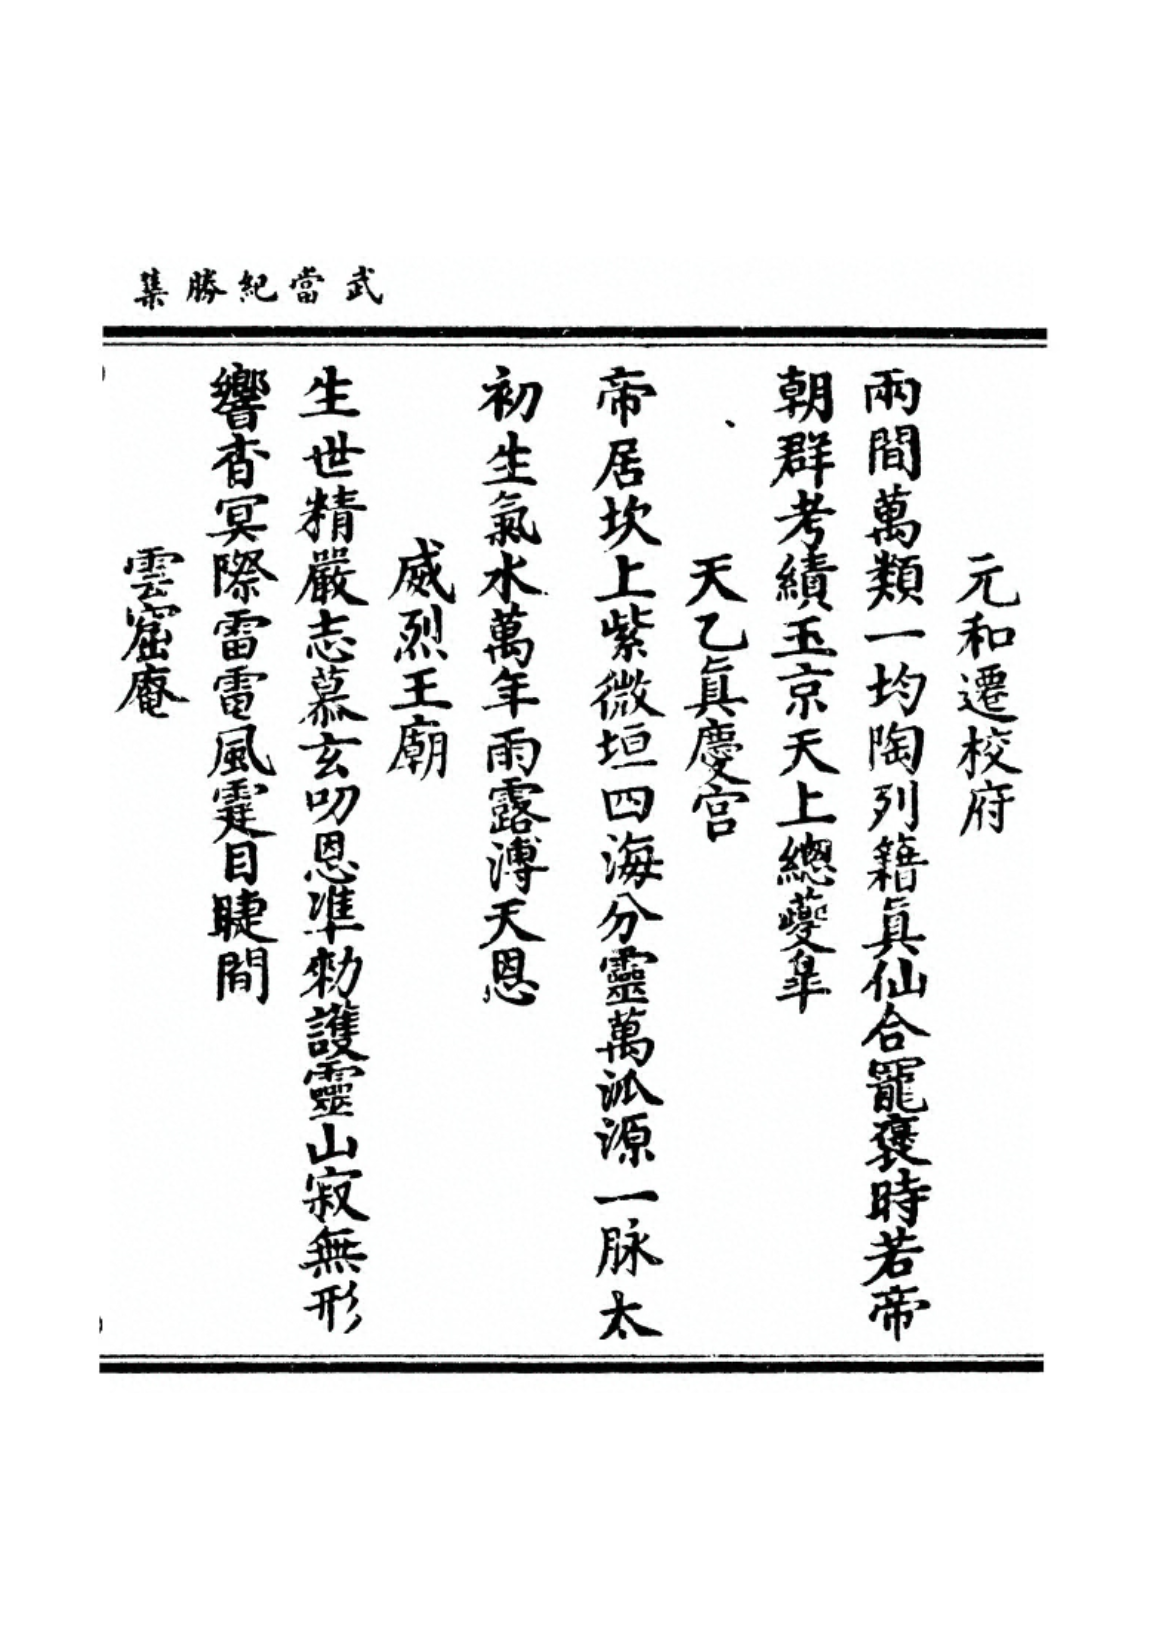 武當紀勝集
元和遷校府
兩間萬類一均陶列籍眞仙合寵褒時若帝
朝群考績玉京天上總夔皐
天乙眞慶宮
帝居坎上紫微垣四海分靈萬派源一脉太
初生氣水萬年雨露溥天恩
威烈王廟
生世精嚴志慕玄叨恩準勑護靈山寂無形
響杳冥際雷電風霆目睫間
雲窟庵